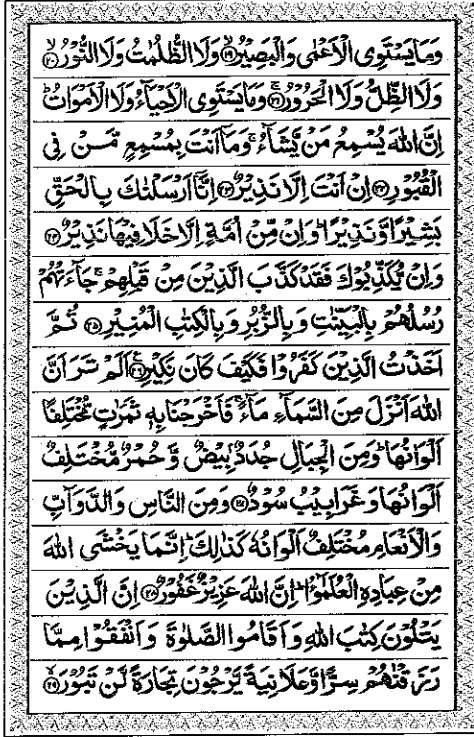 وَمَا یَسْتَوِی الْاَعْمٰی وَالْبَصِیْرُ ۙ﴿۱۹﴾ وَلَا الظُّلُمٰتُ وَلَا النُّوْرُ ۙ﴿۲۰﴾
وَلَا الظِّلُّ وَلَا الْحَرُوْرُ ۚ﴿۲۱﴾ وَمَا یَسْتَوِی الْاَحْیَآءُ وَلَا الْاَمْوَاتُ ؕ
اِنَّ اللهَ یُسْمِعُ مَنْ یَّشَآءُ ۚ وَمَاۤ اَنْتَ بِمُسْمِعٍ مَّنْ فِی
الْقُبُوْرِ ﴿۲۲﴾ اِنْ اَنْتَ اِلَّا نَذِیْرٌ ﴿۲۳﴾ اِنَّاۤ اَرْسَلْنٰكَ بِالْحَقِّ
بَشِیْرًا وَّنَذِیْرًا ؕ وَاِنْ مِّنْ اُمَّةٍ اِلَّا خَلَا فِیْهَا نَذِیْرٌ ﴿۲۴﴾
وَاِنْ یُّكَذِّبُوْكَ فَقَدْ كَذَّبَ الَّذِیْنَ مِنْ قَبْلِهِمْ ۚ جَآءَتْهُمْ
رُسُلُهُمْ بِالْبَیِّنٰتِ وَبِالزُّبُرِ وَبِالْكِتٰبِ الْمُنِیْرِ ﴿۲۵﴾ ثُمَّ
اَخَذْتُ الَّذِیْنَ كَفَرُوْا فَكَیْفَ كَانَ نَكِیْرِ ﴿۲۶﴾ اَلَمْ تَرَ اَنَّ
اللهَ اَنْزَلَ مِنَ السَّمَآءِ مَآءً ۚ فَاَخْرَجْنَا بِهٖ ثَمَرٰتٍ مُّخْتَلِفًا
اَلْوَانُهَا ؕ وَمِنَ الْجِبَالِ جُدَدٌۢ بِیْضٌ وَّحُمْرٌ مُّخْتَلِفٌ
اَلْوَانُهَا وَغَرَابِیْبُ سُوْدٌ ﴿۲۷﴾ وَمِنَ النَّاسِ وَالدَّوَآبِّ
وَالْاَنْعَامِ مُخْتَلِفٌ اَلْوَانُهٗ كَذٰلِكَ ؕ اِنَّمَا یَخْشَی اللهَ
مِنْ عِبَادِهِ الْعُلَمٰٓؤُا ؕ اِنَّ اللهَ عَزِیْزٌ غَفُوْرٌ ﴿۲۸﴾ اِنَّ الَّذِیْنَ
یَتْلُوْنَ كِتٰبَ اللهِ وَاَقَامُوا الصَّلٰوةَ وَاَنْفَقُوْا مِمَّا
رَزَقْنٰهُمْ سِرًّا وَّعَلَانِیَةً یَّرْجُوْنَ تِجَارَةً لَّنْ تَبُوْرَ ۙ﴿۲۹﴾